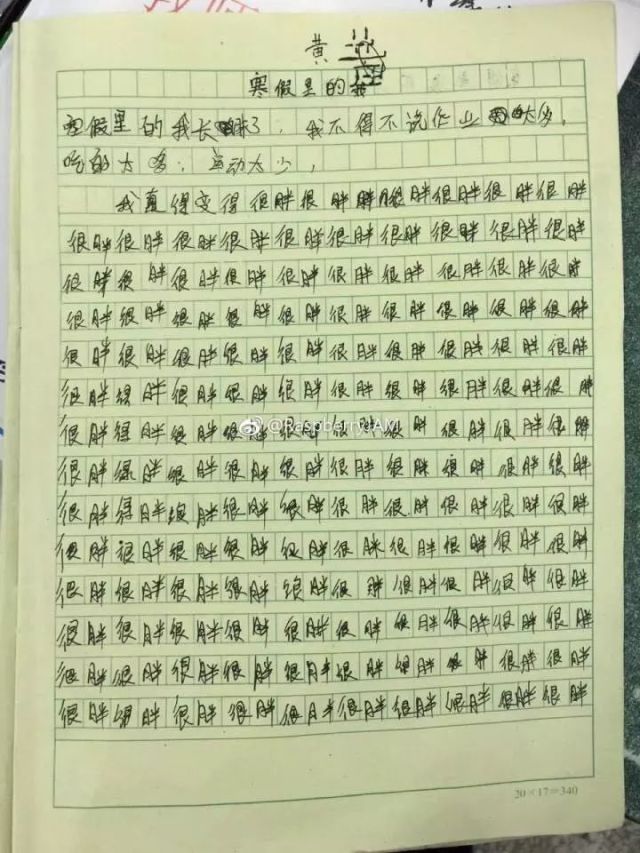 黄
寒假里的我
寒假里的我长胖了，我不得不说作业太多，
吃的太多，运动太少，
我真得变得很胖很胖胖很胖很胖很胖很胖
很胖很胖很胖很胖很胖很胖很胖很胖很胖很胖
很胖很胖很胖很胖很胖很胖很胖很胖很胖很胖
很胖很胖很胖很胖很胖很胖很胖很胖很胖很胖
很胖很胖很胖很胖很胖很胖很胖很胖很胖很胖
很胖很胖很胖很胖很胖很胖很胖很胖很胖很胖
很胖很胖很胖很胖很胖很胖很胖很胖很胖很胖
很胖很胖很胖很胖很胖很胖很胖很胖很胖很胖
很胖很胖很胖很胖很胖很胖很胖很胖很胖很胖
很胖很胖很胖很胖很胖很胖很胖很胖很胖很胖
很胖很胖很胖很胖很胖很胖很胖很胖很胖很胖
很胖很胖很胖很胖很胖很胖很胖很胖很胖很胖
很胖很胖很胖很胖很胖很胖很胖很胖很胖很胖
很胖很胖很胖很胖很胖很胖很胖很胖很胖很胖
20×17=340